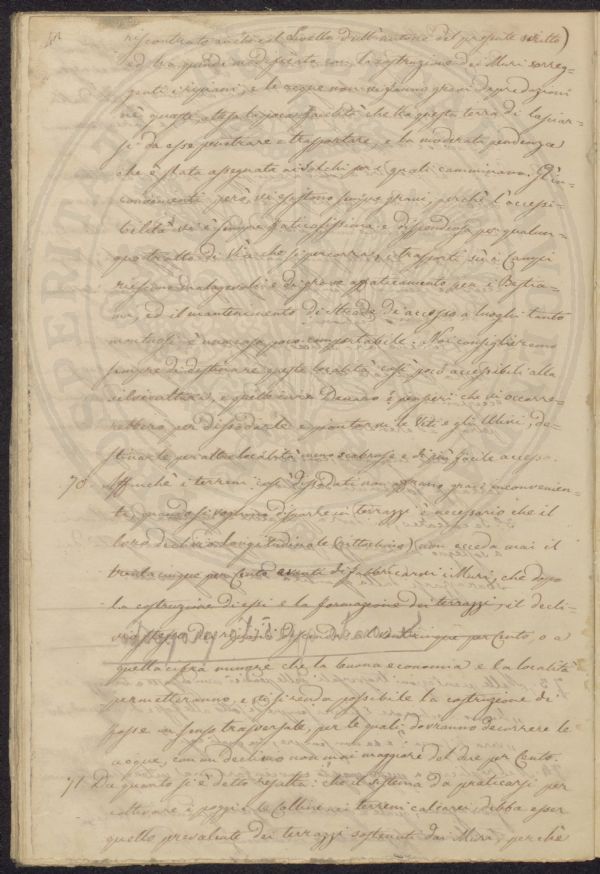 riscontrato anche il Livello dall'autore del presente scritto)
ed ha quindi modificata con la costruzione dei Muri sorreg=
genti i ripiani, e le acque non vi fanno gravi depredazioni
nè guasti, attesa la poca facilità che ha questa terra di lasciar=
si da esse penetrare e trasportare, e la moderata pendenza
che è stata assegnata ai solchi per i quali camminano. Gl'in=
convenienti però vi esistono sempre gravi, perchè l'accessi=
bilità vi è sempre faticosissima e dispendiosa per qualun=
que tratto di Via che si percorra, i trasporti su i Campi
riescono malagevoli e di grave affaticamento per i Bestia=
mi, ed il mantenimento di strade di accesso a luoghi tanto
montuosi è una cosa poco comportabile: Noi consiglieremo
sempre di destinare queste località così poco accessibili alla
selvicoltura, e quelle cure Denaro e pensieri che vi occorre=
rebbero per dissodarle e piantarvi le Viti e gli Ulivi, de=
stinarle per altre località meno scabrose e di più facile accesso.
70. Affinchè i terreni così dissodati non offrano gravi inconvenien=
ti, quando si vogliono disporre in terrazzi è necessario che il
loro declivio longitudinale (rittochino) non ecceda mai il
trentacinque per Cento avanti di fabbricarvi i Muri, che dopo
la costruzione di essi e la formazione dei terrazzi, il decli=
vio stesso dei ripiani discenda al venticinque per Cento, o a
quella cifra minore che la buona economia e la località
permetteranno, e si renda possibile la costruzione di
fosse in senso trasversale, per le quali dovranno decorrere le
acque, con un declivio non mai maggiore del due per Cento.
71. Da quanto si è detto resulta: che il sistema da praticarsi per
coltivare i poggi e le Colline nei terreni calcarei, debba esser
quello prevalente dei terrazzi sostenuti dai Muri, perchè